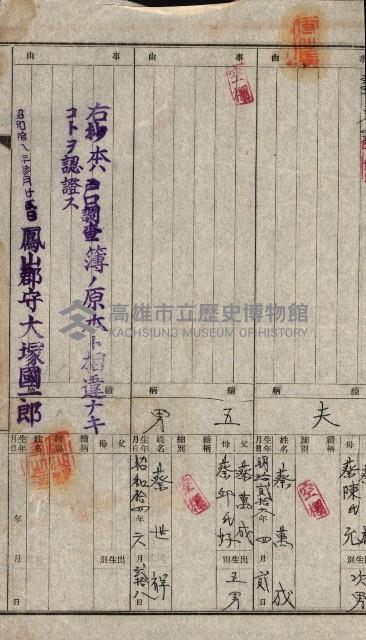 夫
母 蔡陳氏元
次男
姓名 蔡萬成
生年月日 明治貳拾六年四月貳日
空欄
事由
空欄
五男
父 蔡萬成
母 蔡邱氏
出生別 五男
蔡世祥
生年月日 昭和拾四年六月貳拾八日
空欄
事由
右抄本ハ戸口調査簿ノ原本ト相違ナキ
コトヲ認證ス
昭和拾八年
鳳山郡守大塚國一郎
續柄
父
母
出生別
續柄
種別
姓名
生年月日
年月日
高雄市立歷史博物館
KAOHSIUNG MUSEUM OF HISTORY